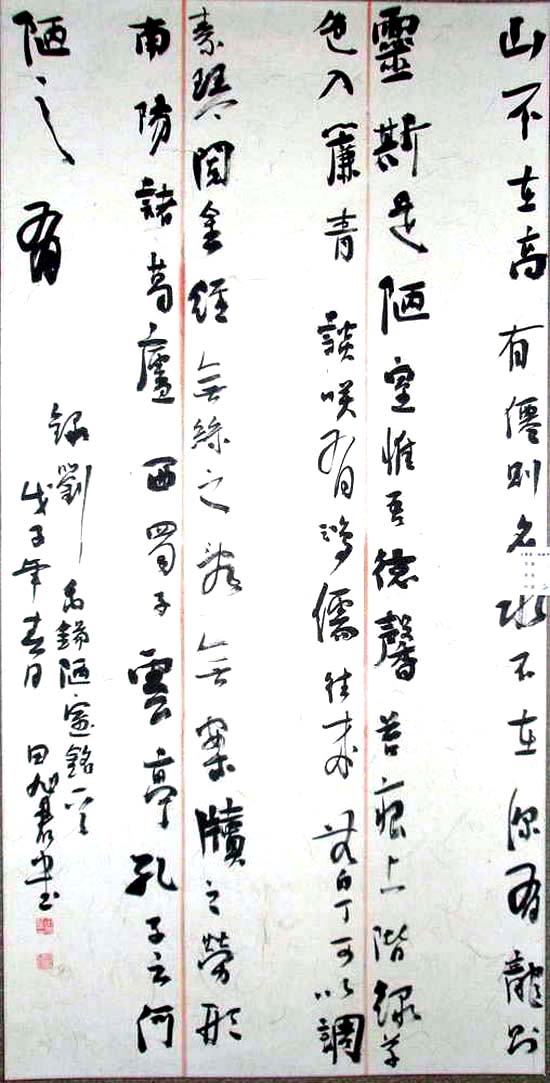 山不在高有僊則名水不在深有龍則
靈斯是陋室惟吾德馨苔痕上階緑草
色入簾青談咲有鴻儒往来無白丁可以調
素琴閲金經無絲之亂無案牘之勞形
南陽諸葛廬西蜀子雲亭孔子云何
陋之有
録劉禹錫陋室銘一首
戊子年春月田旭君书